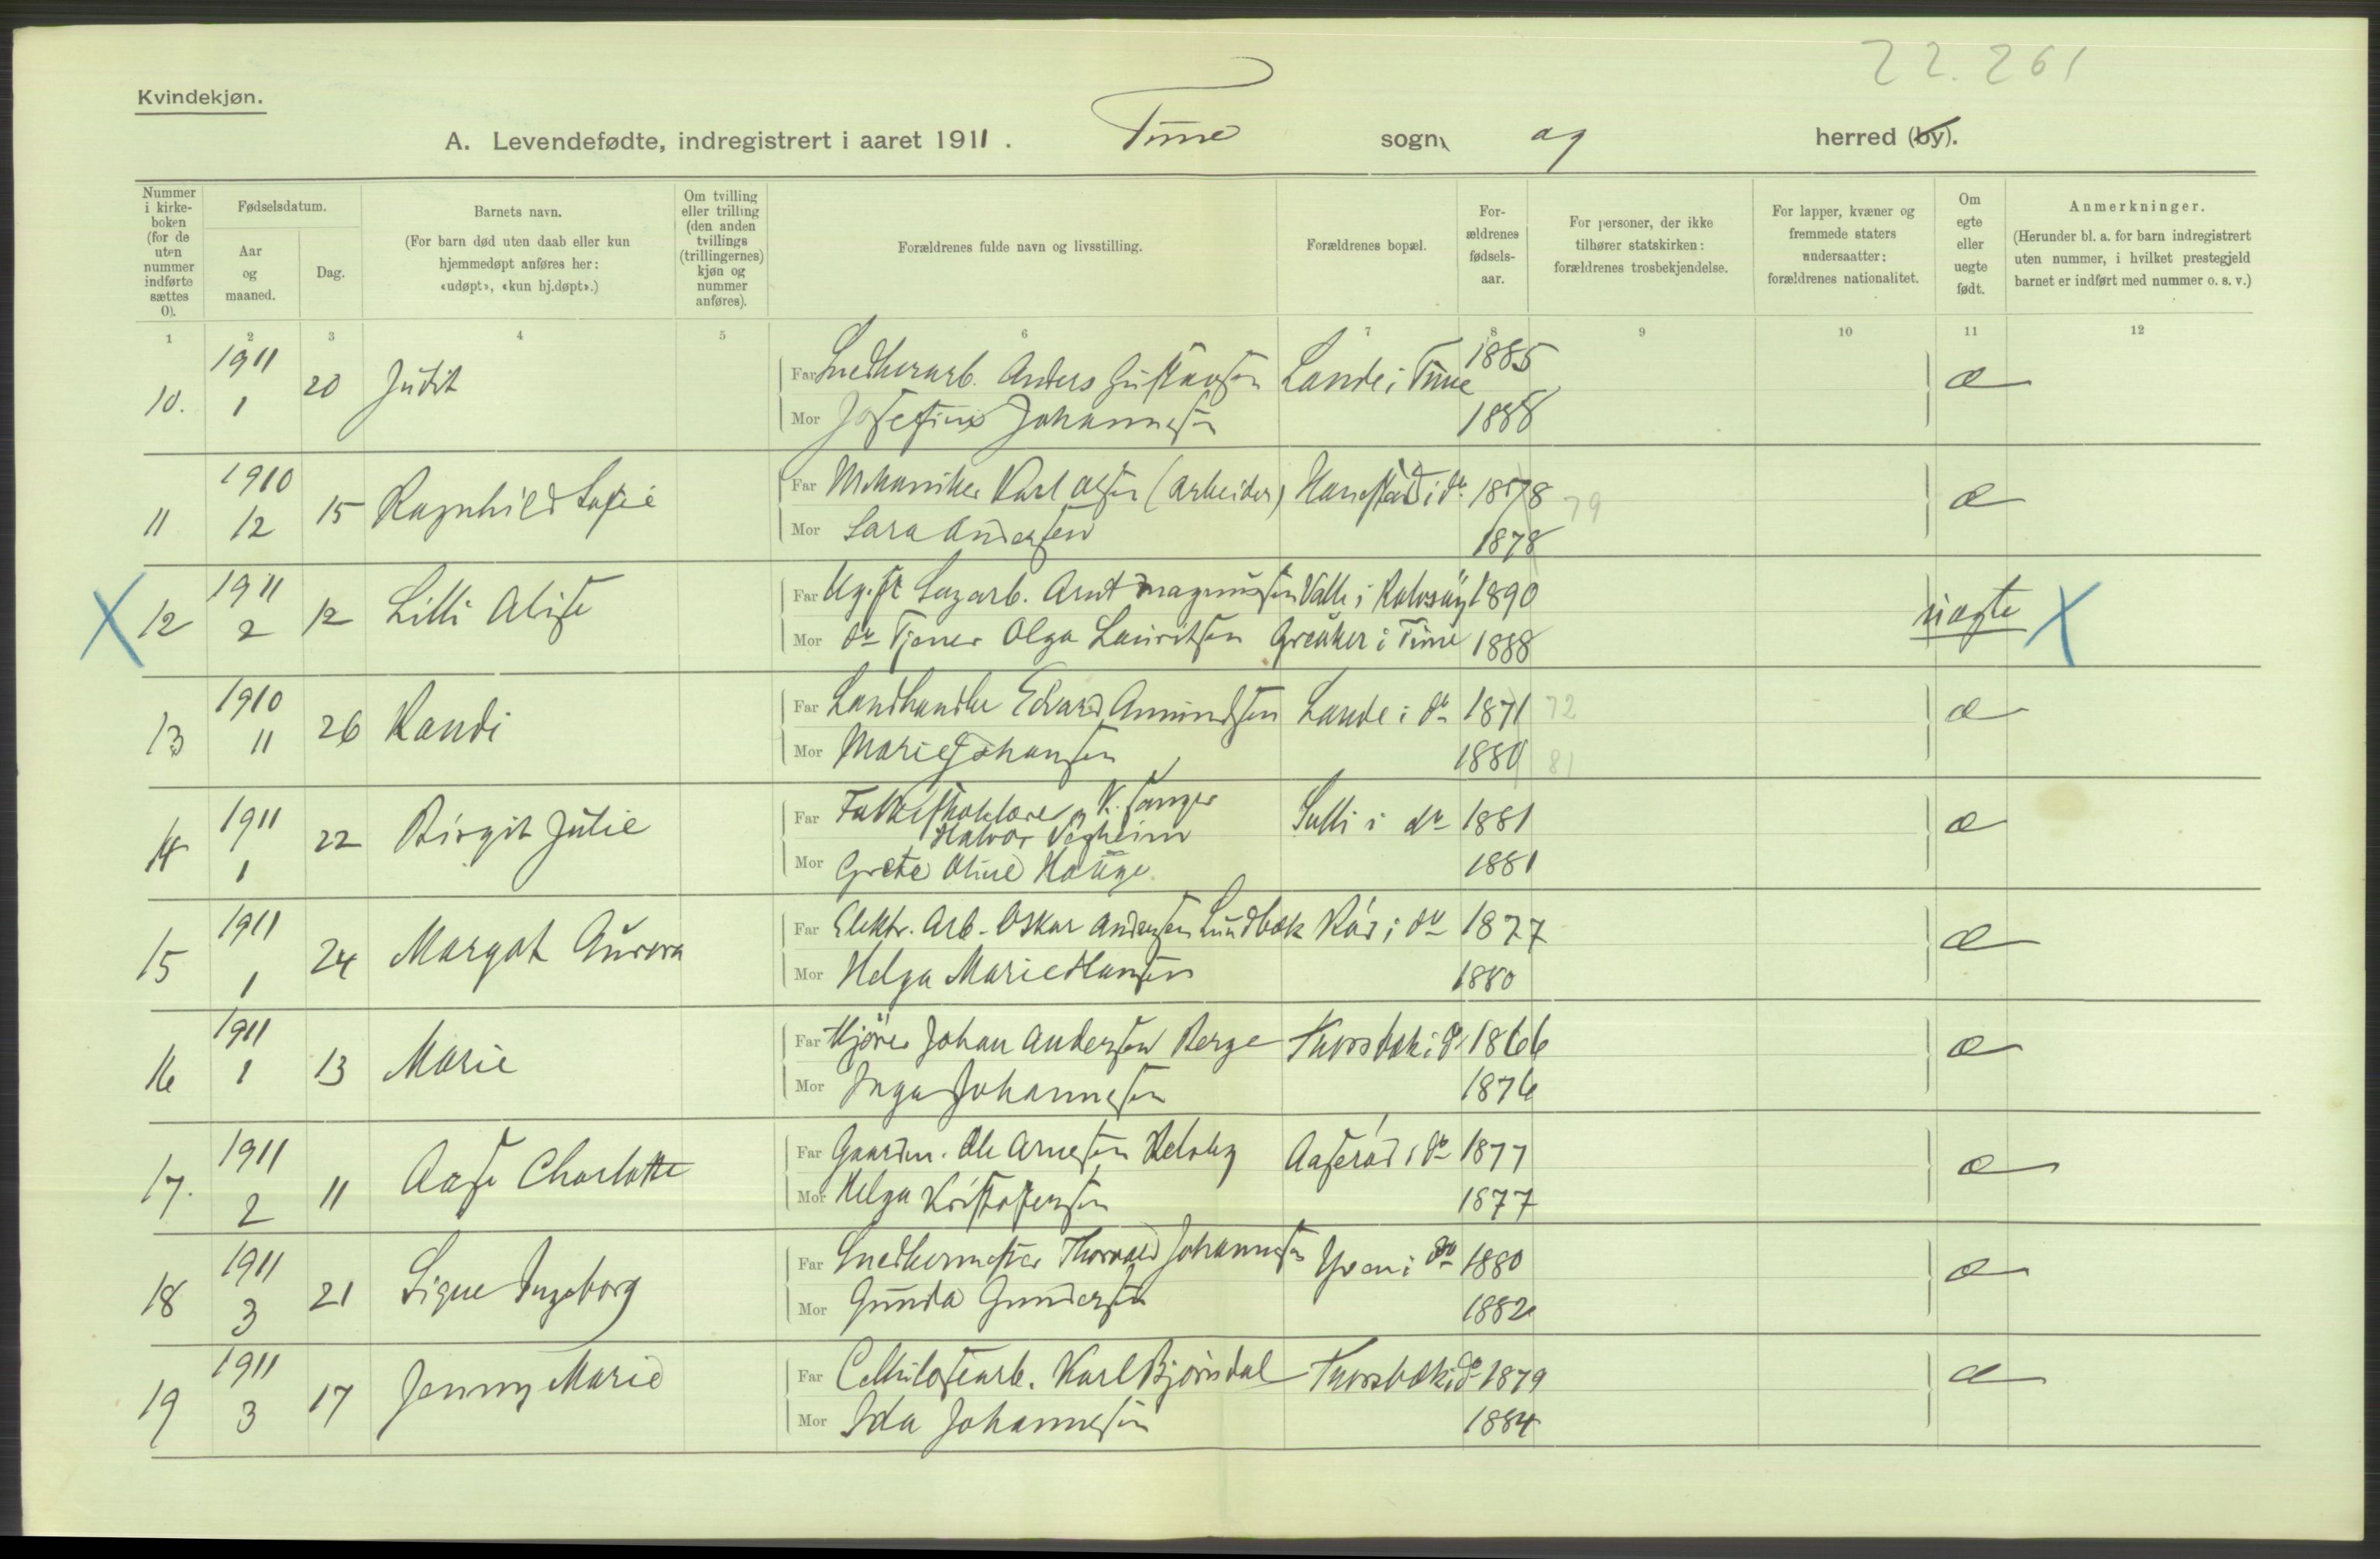 22.261
Kvindekjøn.
A. Levendefødte, indregistrert i aaret 1911. Tune sogn og herred (by).
Nummer i kirkeboken (for de uten nummer indførte sættes 0).
Fødselsdatum.
Aar og maaned.
Dag.
Barnets navn.
(For barn død uten daab eller kun hjemmedøpt anføres her: «udøpt», «kun hj.døpt».)
Om tvilling eller trilling (den anden tvillings (trillingernes) kjøn og nummer anføres).
Forældrenes fulde navn og livsstilling.
Forældrenes bopæl.
Forældrenes fødselsaar.
For personer, der ikke tilhører statskirken: forældrenes trosbekjendelse.
For lapper, kvæner og fremmede staters undersaatter: forældrenes nationalitet.
Om egte eller uegte født.
Anmerkninger.
(Herunder bl. a. for barn indregistrert uten nummer, i hvilket prestegjeld barnet er indført med nummer o. s. v.)
1 2 3 4 5 6 7 8 9 10 11 12
10. 1911 1 20 Judit Far Snedkerarb. Anders Gustavsen Lande i Tune 1885 æ
Mor Josefine Johannesen 1888
11 1910 12 15 Ragnhild Sofie Far Mekaniker Karl Olsen (arbeider) Hanestad i do 1878 79 æ
Mor Sara Andersen 1878
X 12 1911 2 12 Lilli Alise Far Ug. st Sagarb. Arnt Magnussen Valle i Rolvsøy 1890 uægte X
Mor do Tjener Olga Lauritsen Greaker i Tune 1888
13 1910 11 26 Randi Far Landhandler Edvard Amundsen Lande i do 1871 72 æ
Mor Marie Johansen 1880 81
14 1911 1 22 Birgit Julie Far Folkeskolelærer, K. sanger
Halvor Vegheim Sulli i do 1881 æ
Mor Grete Oline Hauge 1881
15 1911 1 24 Margot Aurora Far Elektr. Arb. Oskar Andersen Lundbæk Råd i do 1877 æ
Mor Helga Marie Hansen 1880
16 1911 1 13 Marie Far Kjører Johan Andersen Berge Thorsbæk i do 1866 æ
Mor Inga Johannesen 1876
17. 1911 2 11 Aase Charlotte Far Gaardm. Ole Arnesen Aaserød i do 1877 æ
Mor Helga Kristoffersen 1877
18 1911 3 21 Signe Ingeborg Far Snedkermester Thorvald Johannesen Yven i do 1880 æ
Mor Gunda Gundersen 1882
19 1911 3 17 Jenny Marie Far Cellulosearb. Karl Bjørnsdal Thorsbæk i do 1879 æ
Mor Ida Johannesen 1884